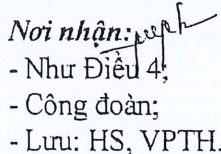 Nơi nhận:
- Như Điều 4;
- Công đoàn;
- Lưu: HS, VPTH.